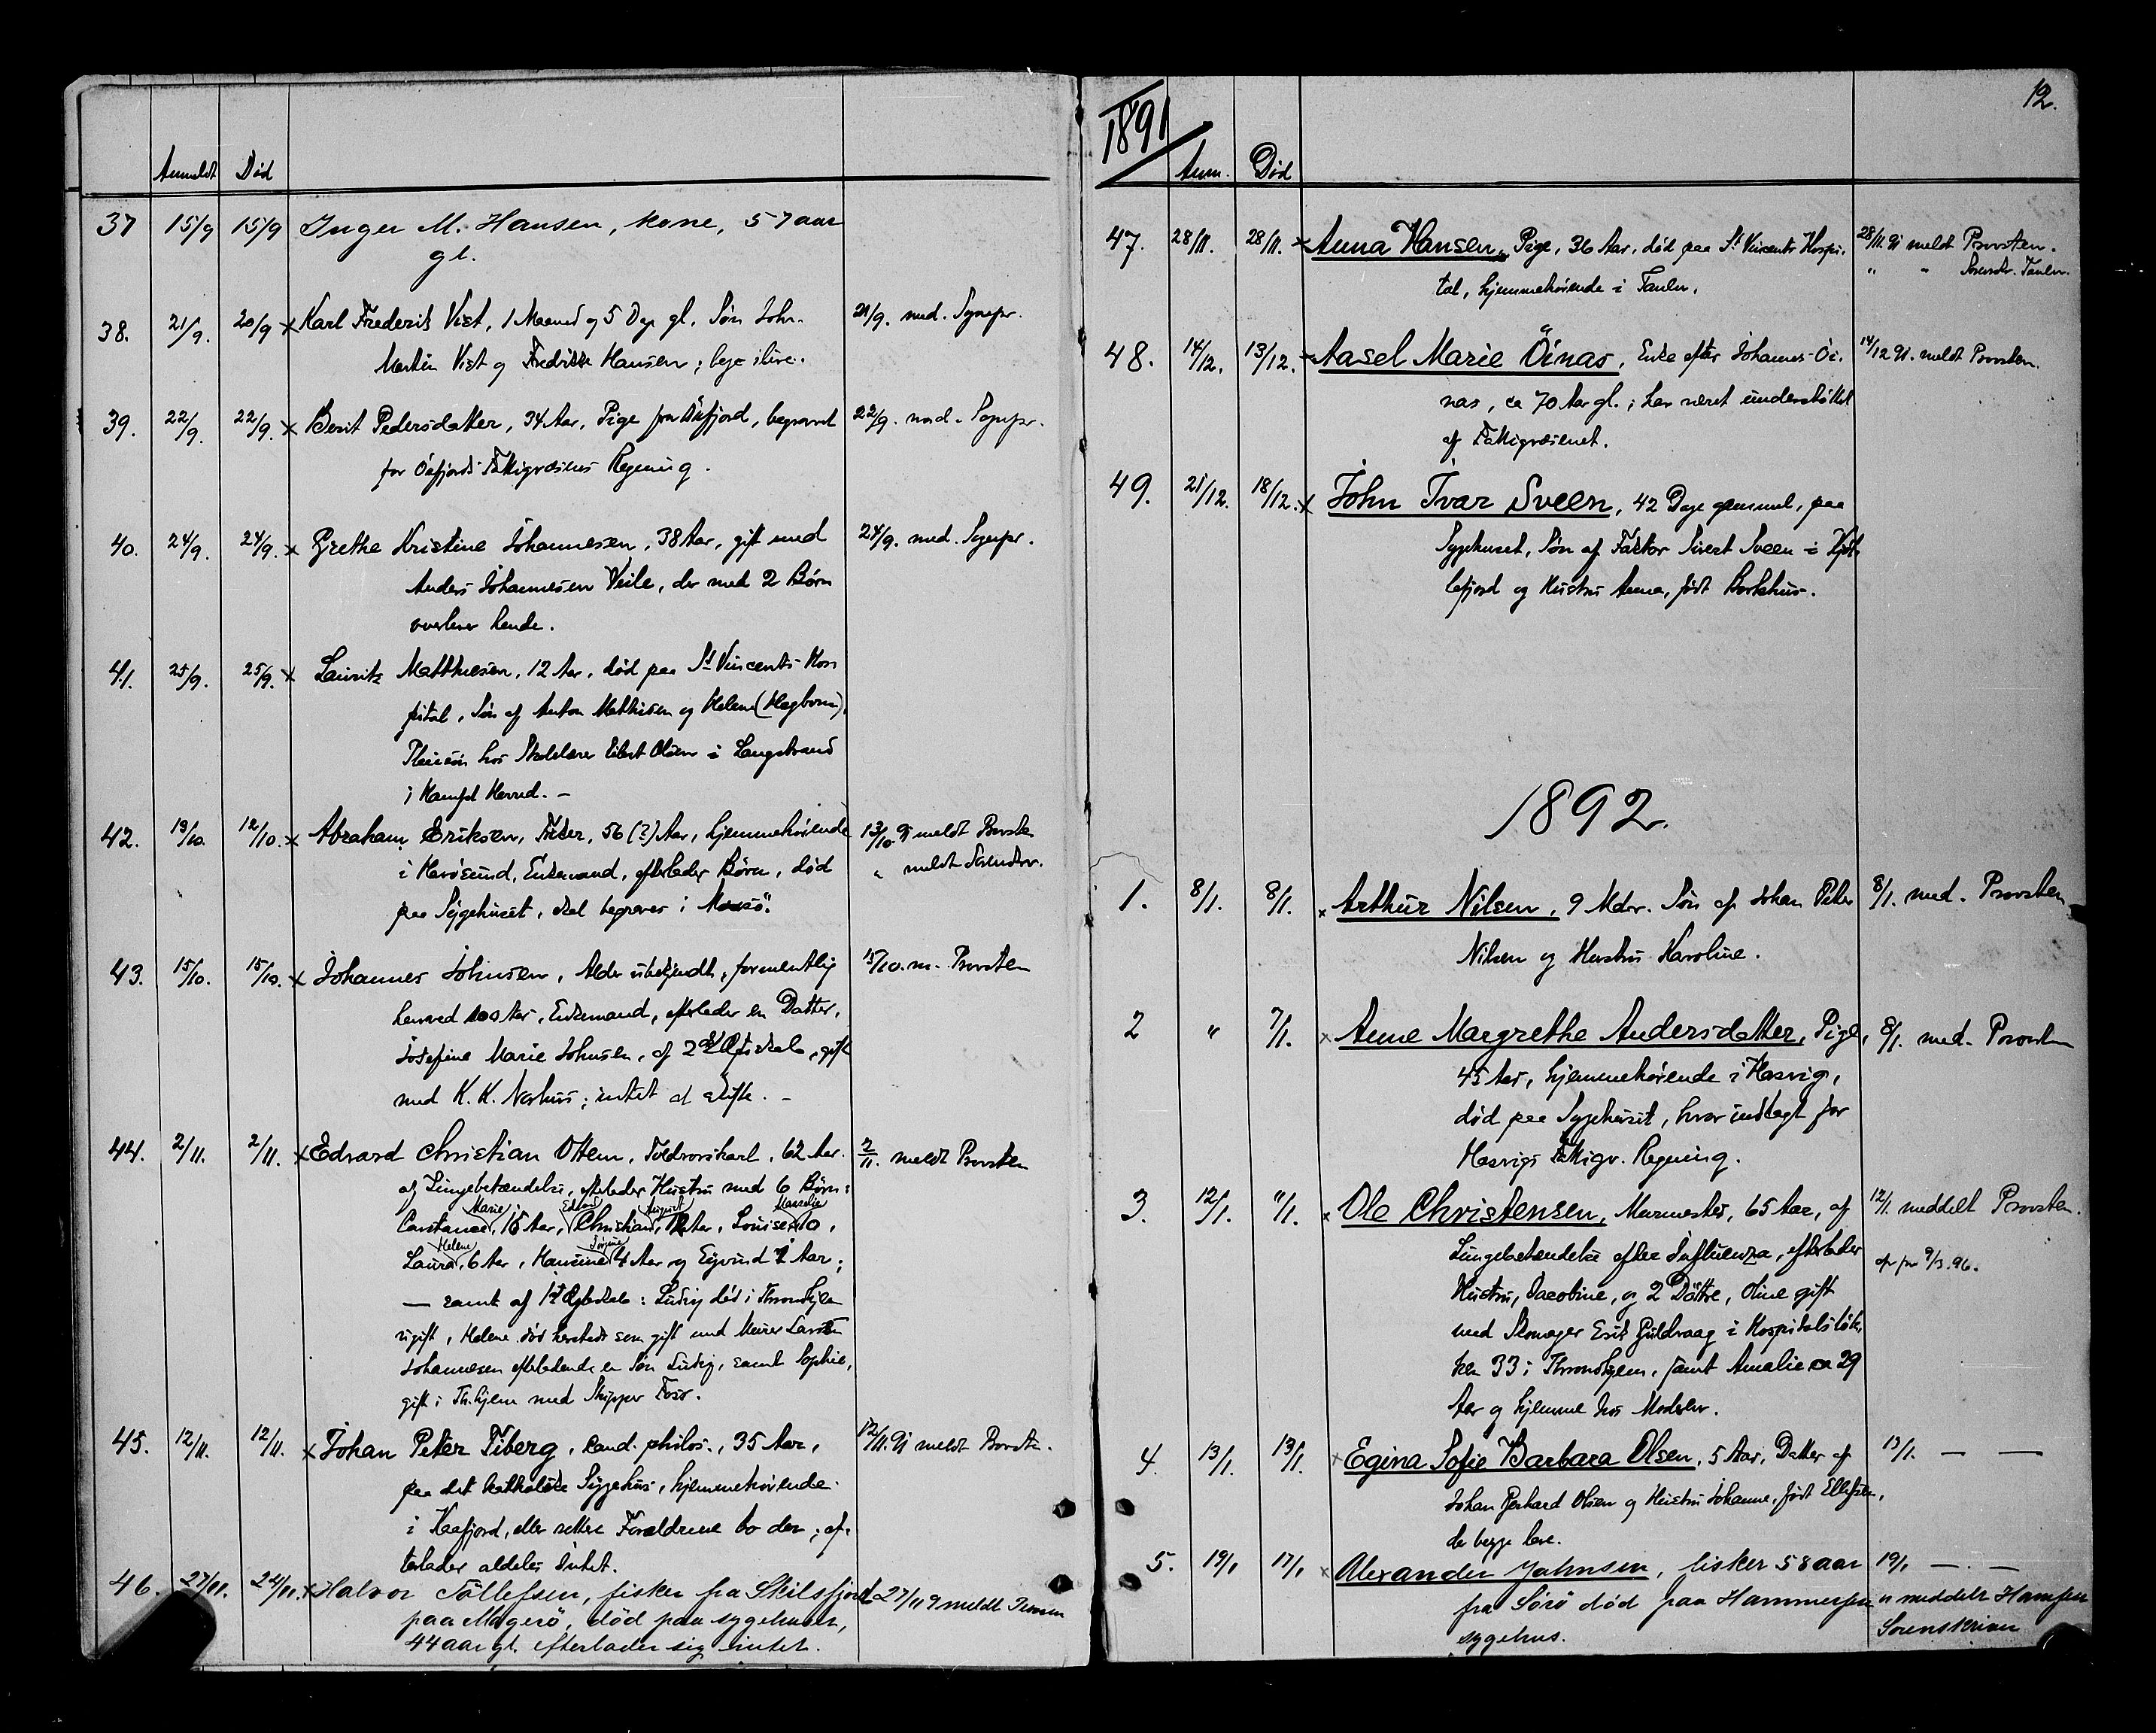 Anmeldt Død
37 15/9 15/9 Inger M. Hansen, kone, 57 aar
gl.
38. 21/9. 20/9 x Karl Frederik Vist, 1 Maaned og 5 Dage gl. Søn John
Martin Vist og Fredrikke Hansen; begge ilive. 21/9. med. Sognepr.
39. 22/9. 22/9. x Berit Pedersdatter, 34 Aar, Pige fra Öxfjord, begravet 22/9. med. Sognepr.
for Öxfjords Fattigvæsens Regning.
40. 24/9. 24/9. x Grethe Kristine Johannesen, 38 Aar, gift med 24/9. med. Sognepr.
Anders Johannesen Veile, der med 2 Børn
overlever hende.
41. 25/9. 25/9. x Lauritz Matthiesen, 12 Aar, død paa St Vincents Hos
pital, Søn af Anton Mathisen og Helene (Hagbom),
Pleiesøn hos Skolelærer Eilert Olsen i Langstrand
i Hamfst Herred. –
42. 13/10. 12/10. x Abraham Eriksen, Fisker, 56 (?) Aar, hjemmehørende 13/10. 91 meldt Provsten
i Havösund, Enkemand, efterlader Børn, død " meldt Sorenskrv.
paa Sygehuset, skal begraves i Maasö.
43. 15/10. 15/10. x Johannes Johnsen, Alder ubekjendt, formentlig 15/10. m. Provsten
henved 100 Aar, Enkemand, efterlader en Datter,
Josefine Marie Johnsen, af 2det Ægteskab, gift
med K. K. Nerhus; intet at skifte. –
44. 2/11. 2/11. x Edvard Christian Ottem, Toldrorskarl, 62 Aar. 2/11. meldt Provsten
af Lungebetændelse, efterlader Hustru med 6 Børn:
Marie Edvard August Marselie
Constance, 15 Aar, Christian, 12 Aar, Louise 10,
Helene Jörgine
Laura, 6 Aar, Hansine 4 Aar og Eyvind 1 Aar;
— samt af 1ste Ægteskab: Ludvig død i Throndhjem
ugift, Helene død hersteds som gift med Murer Larsen
Johannesen efterladende en Søn Ludvig, samt Sophie,
gift i Th.hjem med Skipper Foss.
45. 12/11. 12/11. x Johan Peter Fiberg, cand. philos., 35 Aar, 12/11. 91 meldt Provsten.
paa det katholske Sygehus, hjemmehørende
i Kaafjord, eller rettere Forældrene bo der; ef-
terlader aldeles Intet.
46. 27/11. 24/11. x Halvor Tollefsen, fisker fra Skibsfjord 27/11 91 meldt
paa Magerö, død paa sygehuset,
44 aar gl. efterlader sig intet.
12.
1891
Anm. Død
47. 28/11. 28/11. x Anna Hansen, Pige, 36 Aar, død paa St Vincents Hospi- 28/11. 91 meldt Provsten.
tal, hjemmehørende i Tanen. " " Sorenskr. Tanen.
48. 14/12. 13/12. x Aasel Marie Öinas, Enke efter Johannes Öi- 14/12 91. meldt Provsten.
nas, ca 70 Aar gl.; har været understöttet
af Fattigvæsenet.
49. 21/12. 18/12. x John Ivar Sveen, 42 Dage gammel, paa
Sygehuset, Søn af Faktor Sivert Sveen i Kjøl
lefjord og Hustru Anna, født Borkhus.
1892.
1. 8/1. 8/1. x Arthur Nilsen, 9 Mdr. Søn af Johan Peter 8/1. med. Provsten
Nilsen og Hustru Karoline.
2 " 7/1. x Anne Margrethe Andersdatter, Pige, 8/1. med. Provsten
45 Aar, hjemmehørende i Hasvig,
død paa Sygehuset, hvor indlagt for
Hasvigs Fattigv. Regning.
3. 12/1. 11/1. x Ole Christensen, Murmester, 65 Aar, af 12/1. meddelt Provsten.
Lungebetændelse efter Influenza, efterlader
Hustru, Jacobine, og 2 Döttre, Oline gift 9/3. 96.
med Skomager Erik Guldvaag i Hospitalslök-
ken 33 i Throndhjem, samt Amalie ca 29
Aar og hjemme hos Moderen.
4. 13/1. 13/1. x Egina Sofie Barbara Olsen, 5 Aar, Datter af 13/1. — —
Johan Gerhard Olsen og Hustru Johanne, født Ellefsen,
de begge leve.
5. 19/1 17/1 x Alexander Johnsen, fisker 58 aar 19/1 — —
fra Sörö død paa Hammerfest " meddelt Hamfest
sygehus. Sorenskriver